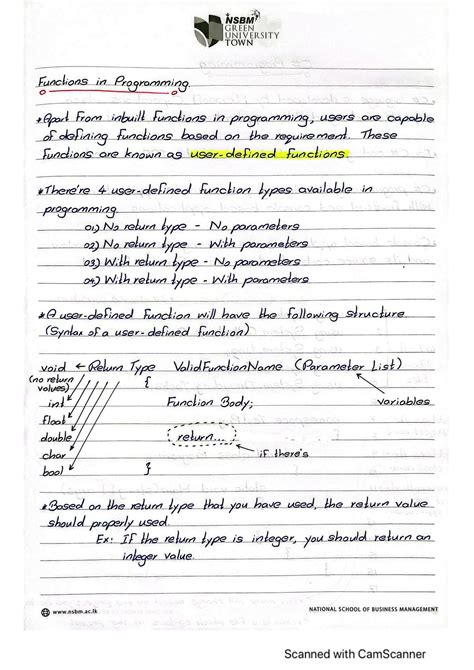 NSBM
GREEN
UNIVERSITY
TOWN
Functions in Programming.
*Apart from inbuilt functions in programming, users are capable
of defining functions based on the requirement. These
functions are known as user-defined functions.
*There're 4 user-defined function types available in
programming.
01) No return type - No parameters
02) No return type - With parameters
03) With return type - No parameters
04) With return type - With parameters
*A user-defined function will have the following structure.
(Syntax of a user-defined function)
void ← Return Type ValidFunctionName (Parameter List)
(no return {
values)
int Function Body; variables
float
double return...;
char if there's
bool }
*Based on the return type that you have used, the return value
should properly used.
Ex: If the return type is integer, you should return an
integer value.
www.nsbm.ac.lk NATIONAL SCHOOL OF BUSINESS MANAGEMENT
Scanned with CamScanner